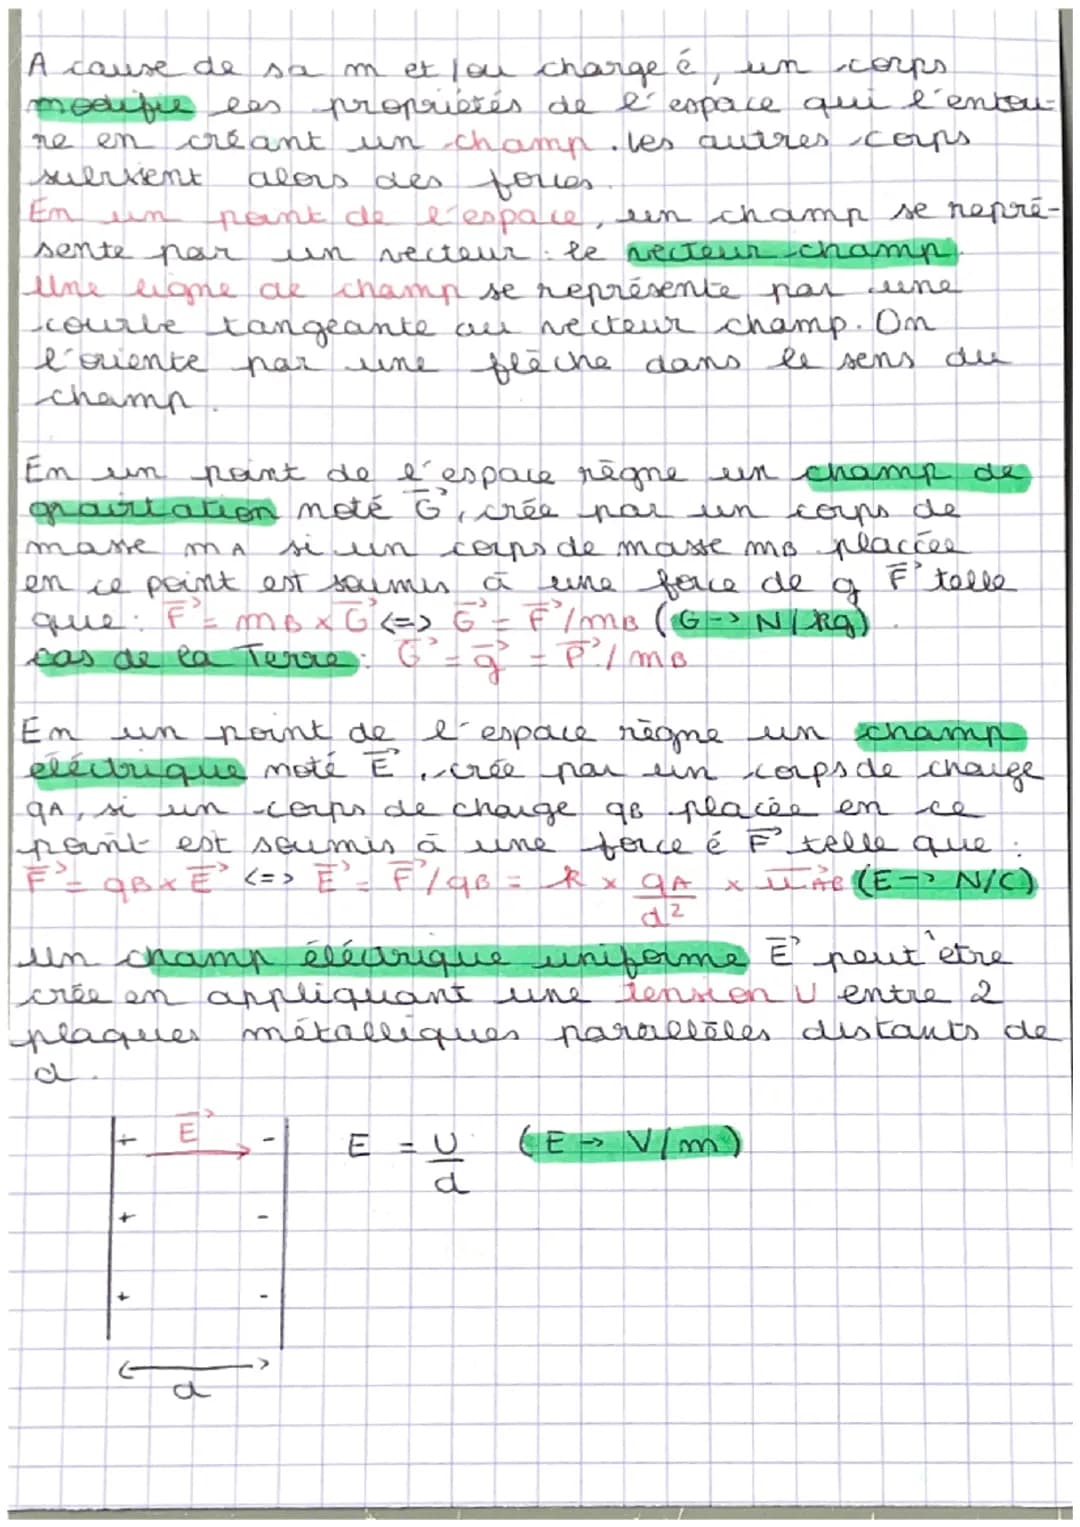 A cause de sa m et/ou charge é, un corps
modifie les propriétés de l'espace qui l'entou-
re en créant un champ. Les autres corps
subissent alors des forces.
En un point de l'espace, un champ se repré-
sente par un vecteur : le vecteur champ.
Une ligne de champ se représente par une
courbe tangeante au vecteur champ. On
l'oriente par une flèche dans le sens du
champ.
En un point de l'espace règne un champ de
gravitation noté G⃗, crée par un corps de
masse mA si un corps de masse mB placée
en ce point est soumis à une force de g F⃗ telle
que : F⃗ = mB x G⃗ <=> G⃗ = F⃗/mB (G -> N/kg).
cas de la Terre : G⃗ = g⃗ = P⃗/mB
En un point de l'espace règne un champ
éléctrique noté E⃗, crée par un corps de charge
qA, si un corps de charge qB placée en ce
point est soumis à une force é F⃗ telle que :
F⃗ = qB x E⃗ <=> E⃗ = F⃗/qB = k x qA/d² x u⃗AB (E -> N/C)
un champ éléctrique uniforme E⃗ peut être
crée en appliquant une tension U entre 2
plaques métalliques parallèles distants de
d.
+ E⃗ - E = U/d (E -> V/m)
+ -
+ -
d